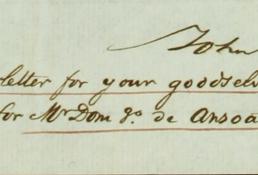 John
letter for your goodselv
for Mr Dom go. de Ansoa